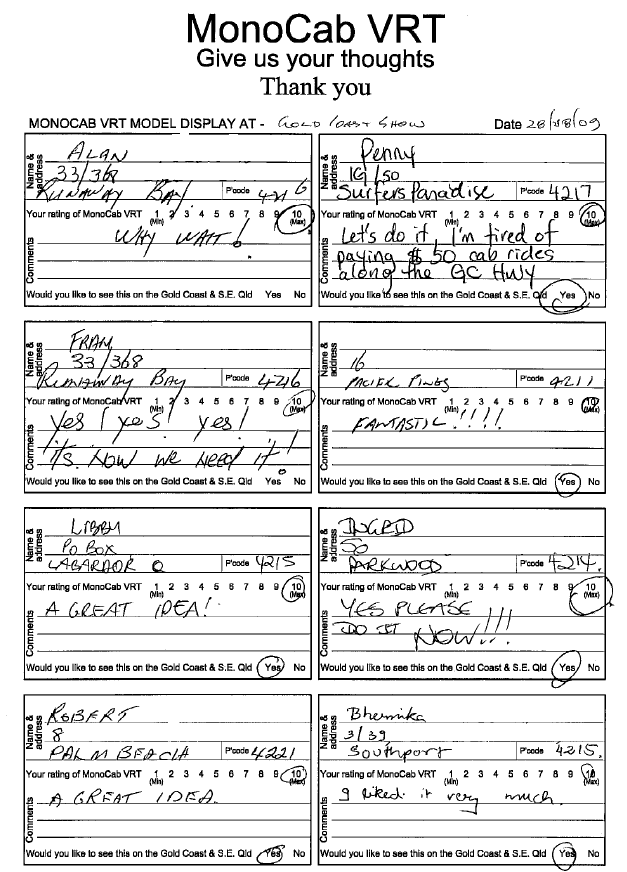 MonoCab VRT
Give us your thoughts
Thank you
MONOCAB VRT MODEL DISPLAY AT - GOLD COAST SHOW Date 28/08/09
Name & address
ALAN
33/368
RUNAWAY BAY P'code 4216
Your rating of MonoCab VRT 1 2 3 4 5 6 7 8 9 10
(Min) (Max)
Comments
WHY WAIT!
Would you like to see this on the Gold Coast & S.E. Qld Yes No
Name & address
Penny
19/50
Surfers Paradise P'code 4217
Your rating of MonoCab VRT 1 2 3 4 5 6 7 8 9 10
(Min) (Max)
Comments
Let's do it, I'm tired of
paying $50 cab rides
along the GC Hwy
Would you like to see this on the Gold Coast & S.E. Qld Yes No
Name & address
FRAN
33/368
RUNAWAY BAY P'code 4216
Your rating of MonoCab VRT 1 2 3 4 5 6 7 8 9 10
(Min) (Max)
Comments
Yes! yes! yes!
its now we need it!
Would you like to see this on the Gold Coast & S.E. Qld Yes No
Name & address
16
PACIFIC PINES P'code 4211
Your rating of MonoCab VRT 1 2 3 4 5 6 7 8 9 10
(Min) (Max)
Comments
FANTASTIC!!!!
Would you like to see this on the Gold Coast & S.E. Qld Yes No
Name & address
LIBBY
PO BOX
LABARADOR Q P'code 4215
Your rating of MonoCab VRT 1 2 3 4 5 6 7 8 9 10
(Min) (Max)
Comments
A GREAT IDEA!
Would you like to see this on the Gold Coast & S.E. Qld Yes No
Name & address
INGRID
50
PARKWOOD P'code 4214.
Your rating of MonoCab VRT 1 2 3 4 5 6 7 8 9 10
(Min) (Max)
Comments
YES PLEASE
DO IT NOW!!!
Would you like to see this on the Gold Coast & S.E. Qld Yes No
Name & address
ROBERT
8
PALM BEACH P'code 4221
Your rating of MonoCab VRT 1 2 3 4 5 6 7 8 9 10
(Min) (Max)
Comments
A GREAT IDEA.
Would you like to see this on the Gold Coast & S.E. Qld Yes No
Name & address
Bhermika
3/39
Southport P'code 4215.
Your rating of MonoCab VRT 1 2 3 4 5 6 7 8 9 10
(Min) (Max)
Comments
I liked it very much.
Would you like to see this on the Gold Coast & S.E. Qld Yes No